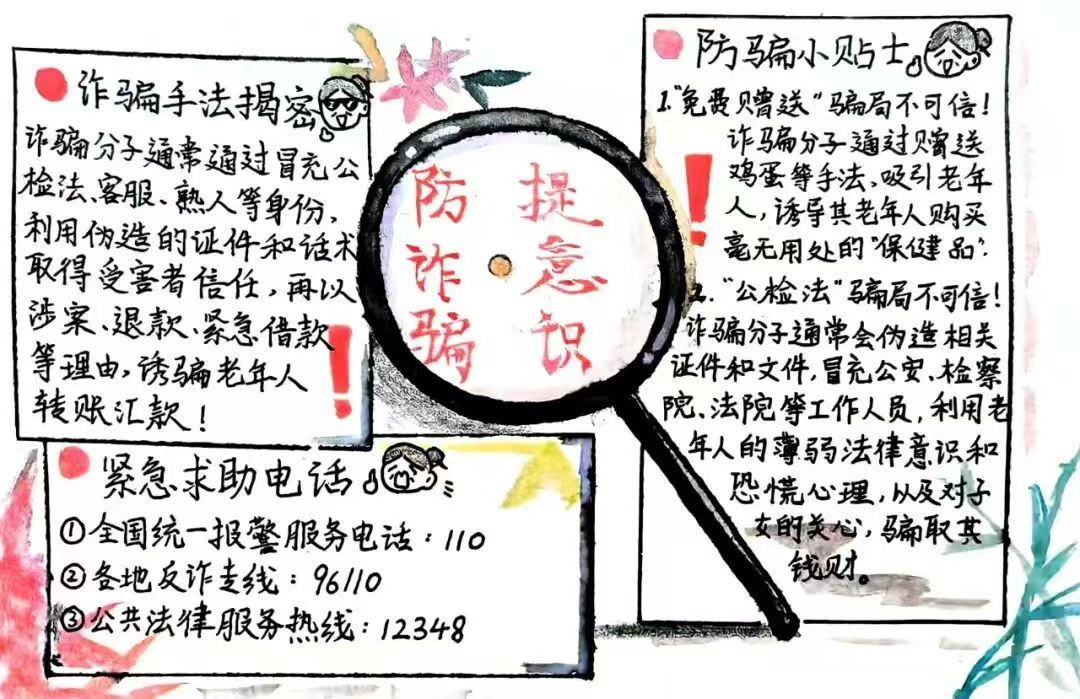 诈骗手法揭密
诈骗分子通常通过冒充公
检法、客服、熟人等身份,
利用伪造的证件和话术
取得受害者信任,再以
涉案、退款、紧急借款
等理由,诱骗老年人
转账汇款!
防诈骗
提意识
防骗小贴士
1."免费赠送"骗局不可信!
诈骗分子通过赠送
鸡蛋等手法,吸引老年
人,诱导其老年人购买
毫无用处的"保健品".
2."公检法"骗局不可信!
诈骗分子通常会伪造相关
证件和文件,冒充公安、检察
院、法院等工作人员,利用老
年人的薄弱法律意识和
恐慌心理,以及对子
女的关心,骗取其
钱财。
紧急求助电话
①全国统一报警服务电话:110
②各地反诈专线:96110
③公共法律服务热线:12348